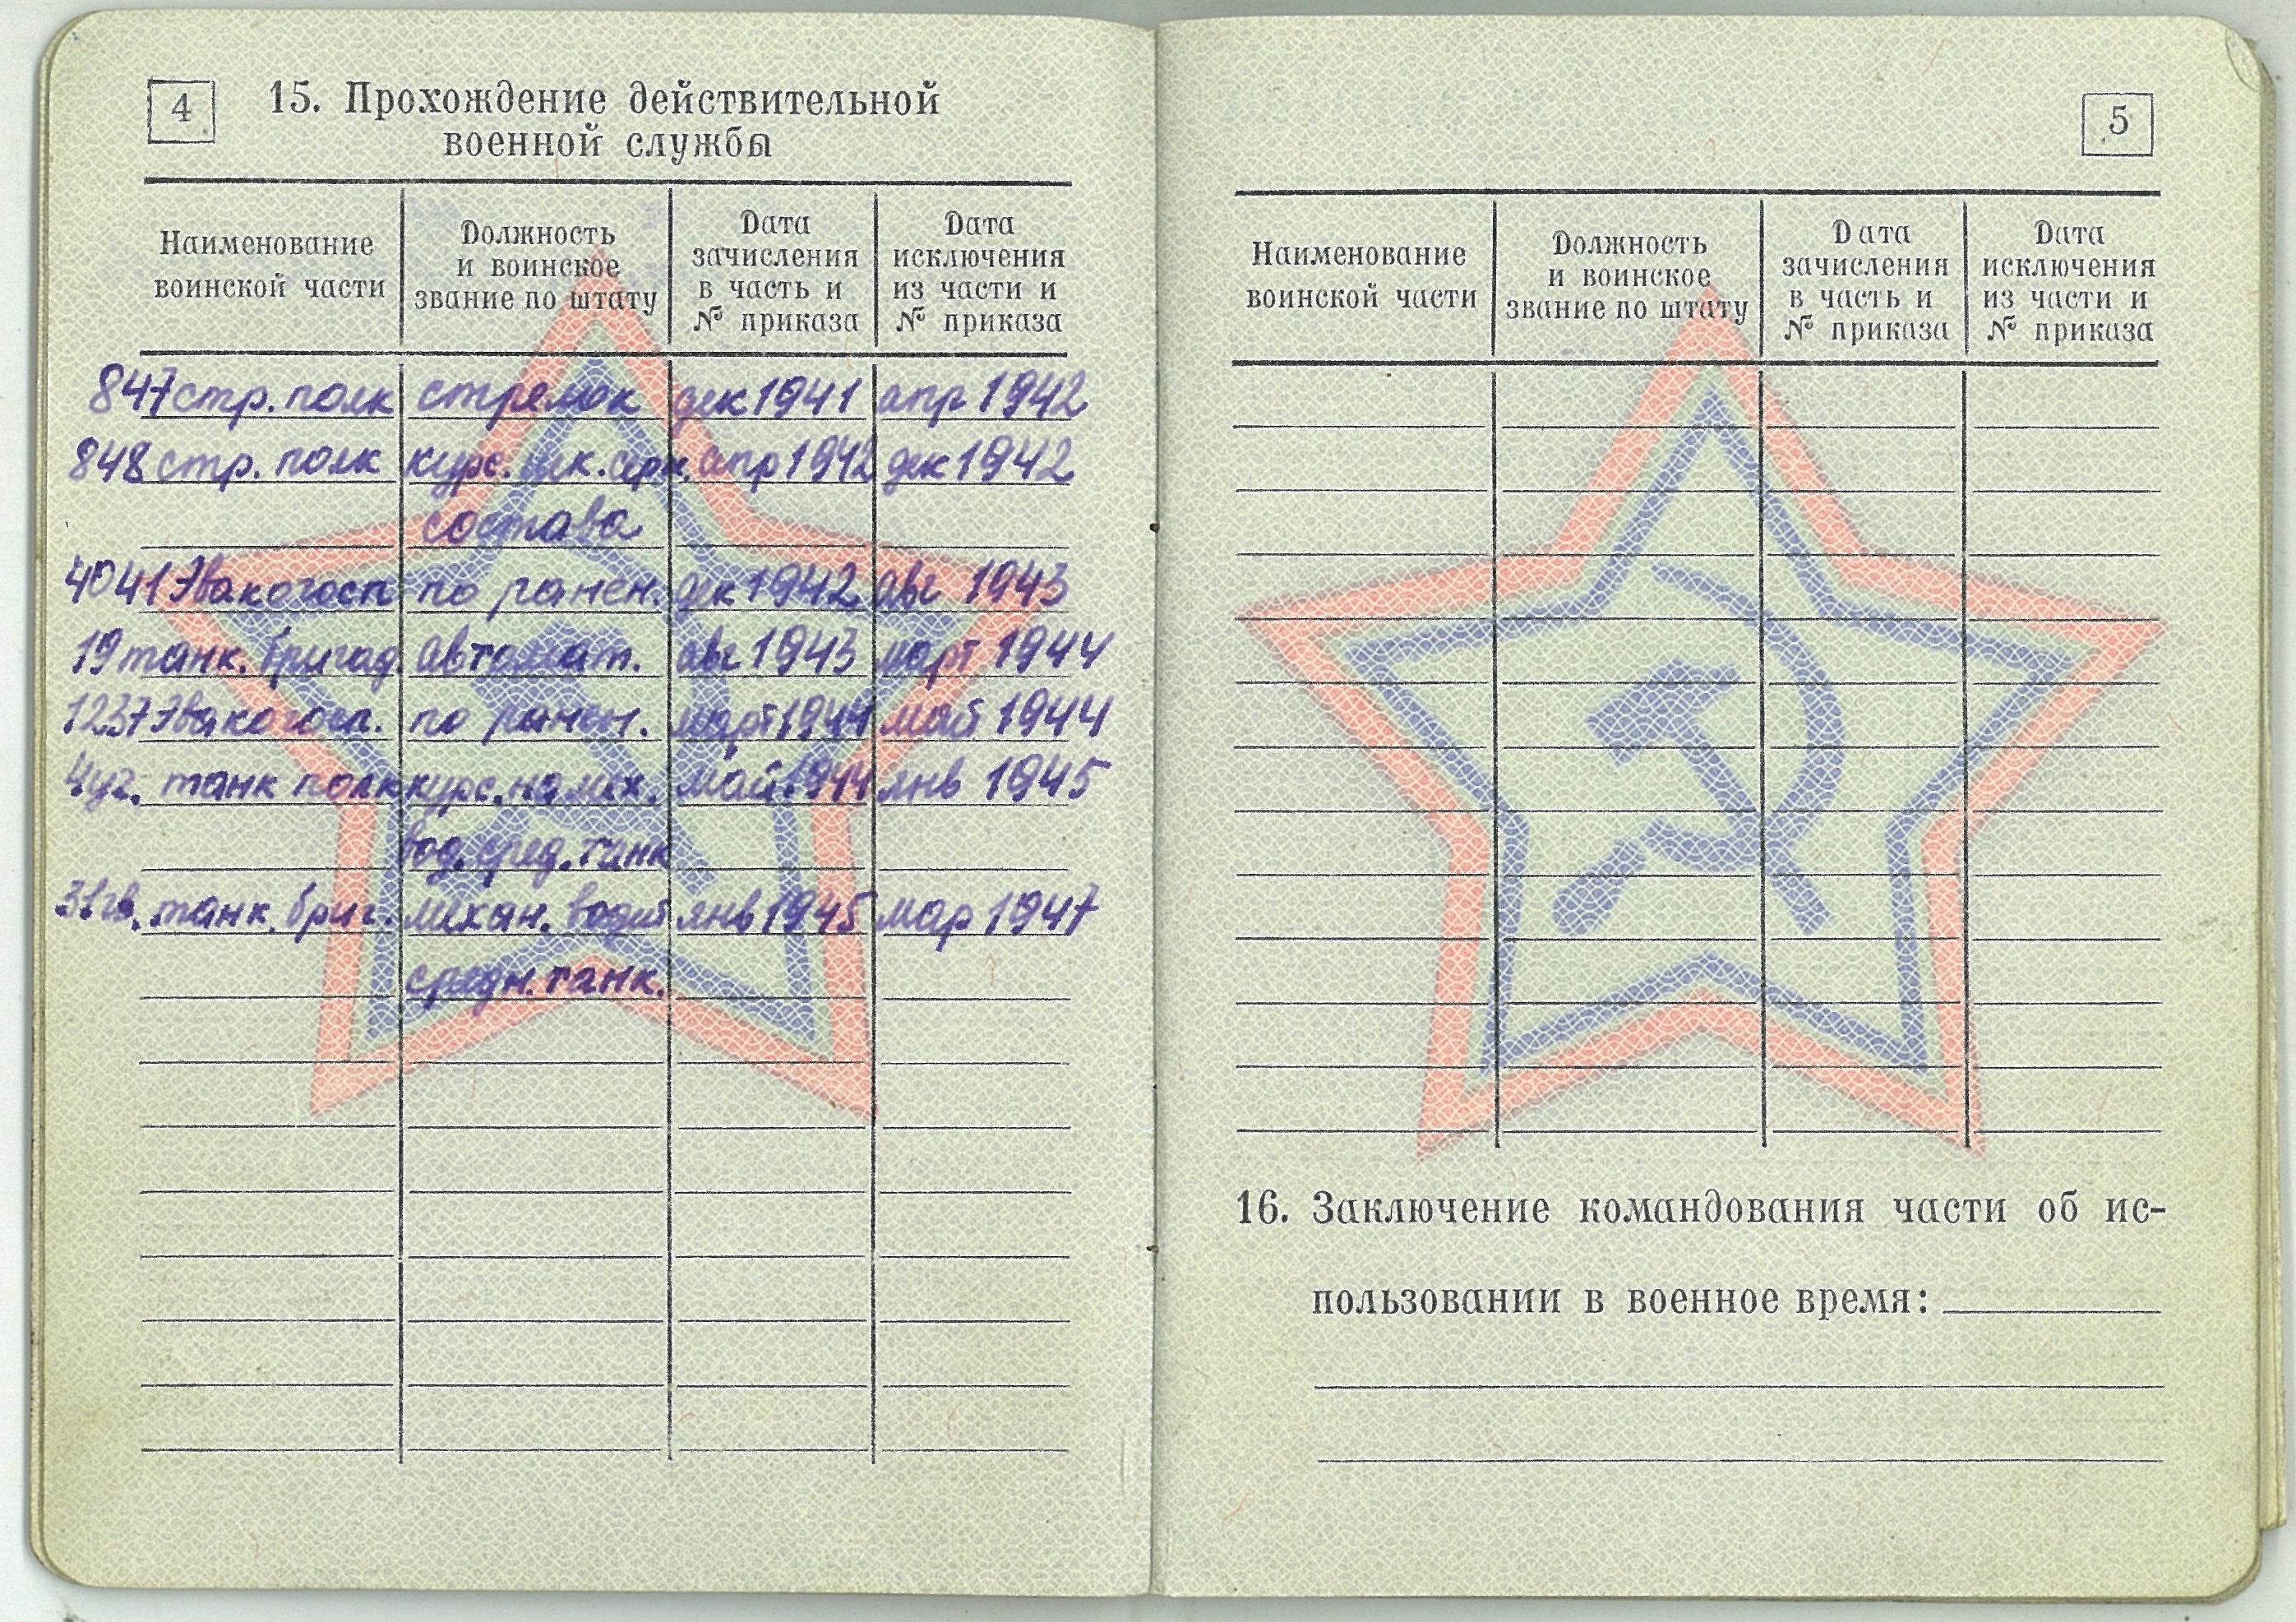 4
15. Прохождение действительной
военной службы
Наименование
воинской части
Должность
и воинское
звание по штату
Дата
зачисления
в часть и
№ приказа
Дата
исключения
из части и
№ приказа
847 стр. полк стрелок дек 1941 апр 1942
848 стр. полк курс. шк. серж. апр 1942 дек 1942
состава
4041 Эвакогосп по ранен. дек 1942 авг 1943
19 танк. бригад. автомат. авг 1943 март 1944
1237 Эвакогосп. по ранен. март 1944 май 1944
4 уч. танк полк курс. на мех. май 1944 янв 1945
вод. сред. танк
31 гв. танк. бриг. механ. водит янв 1945 мар 1947
средн. танк.
5
Наименование
воинской части
Должность
и воинское
звание по штату
Дата
зачисления
в часть и
№ приказа
Дата
исключения
из части и
№ приказа
16. Заключение командования части об ис-
пользовании в военное время: